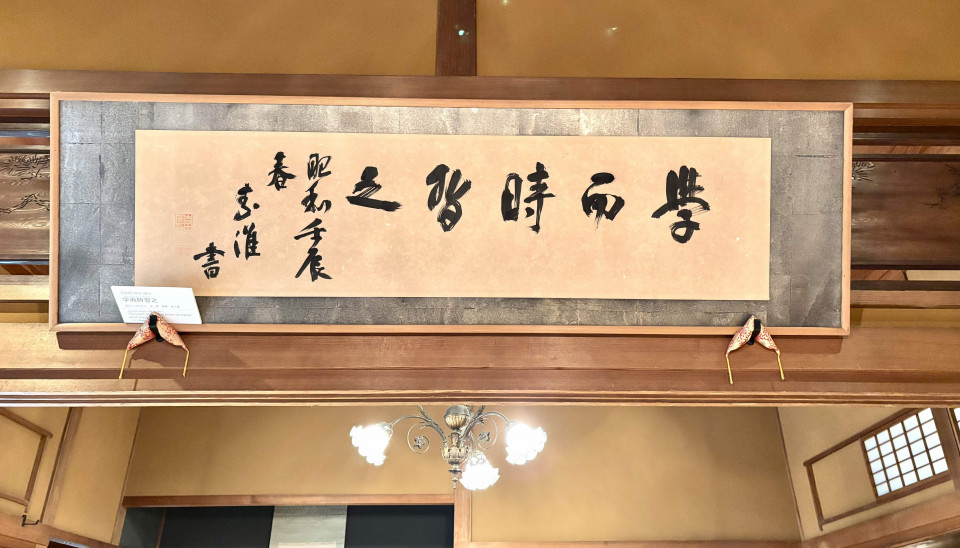 學而時習之
昭和壬辰
春
素淮
書
学而時習之